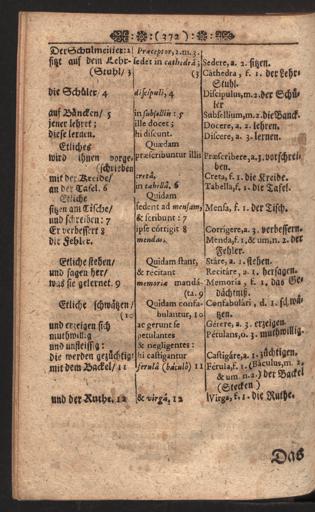 (272)
Der Schulmeister: 2 Præceptor, 2. m. 3.
sitzt auf dem Lehr- sedet in cathedrâ; Sedere, a. 2. sitzen.
(Stuhl/ 3 (3 Cathedra, f. 1. der Lehr-
Stuhl.
die Schüler/ 4 discipuli, 4 Discipulus, m. 2. der Schü-
ler
auf Bäncken/ 5 in subselliis: 5 Subsellium, m. 2. die Banck.
jener lehret; ille docet; Docere, a. 2. lehren.
diese lernen. hi discunt. Discere, a. 3. lernen.
Etliches Quædam
wird ihnen vorge- præscribuntur illis Præscribere, a. 3. vorschrei-
(schrieben ben.
mit der Kreide/ cretâ, Creta, f. 1. die Kreide.
an der Tafel. 6 in tabellâ. 6 Tabella, f. 1. die Tafel.
Etliche Quidam
sitzen am Tische/ sedent ad mensam, Mensa, f. 1. der Tisch.
und schreiben: 7 & scribunt: 7
Er verbessert 8 ipse corrigit 8 Corrigere, a. 3. verbessern.
die Fehler. mendas. Menda, f. 1. & um, n. 2. der
Fehler.
Etliche stehen/ Quidam stant, Stare, a. 1. stehen.
und sagen her/ & recitant Recitare, a. 1. hersagen.
was sie gelernet. 9 memoria mandâ- Memoria, f. 1. das Ge-
(ta. 9 dächtniß.
Etliche schwätzen/ Quidam confa- Confabulari, d. 1. schwä-
(10 bulantur, 10 tzen.
und erzeigen sich ac gerunt se Gerere, a. 3. erzeigen.
muthwillig petulantes Petulans, o. 3. muthwillig.
und unfleissig: & negligentes:
die werden gezüchtigt hi castigantur Castigare, a. 1. züchtigen.
mit dem Backel/ 11 ferulâ (baculô) 11 Ferula, f. 1. (Baculus, m. 2.
& um. n. 2.) der Backel
(Stecken)
und der Ruthe. 12 & virgâ, 12 Virga, f. 1. die Ruthe.
Das